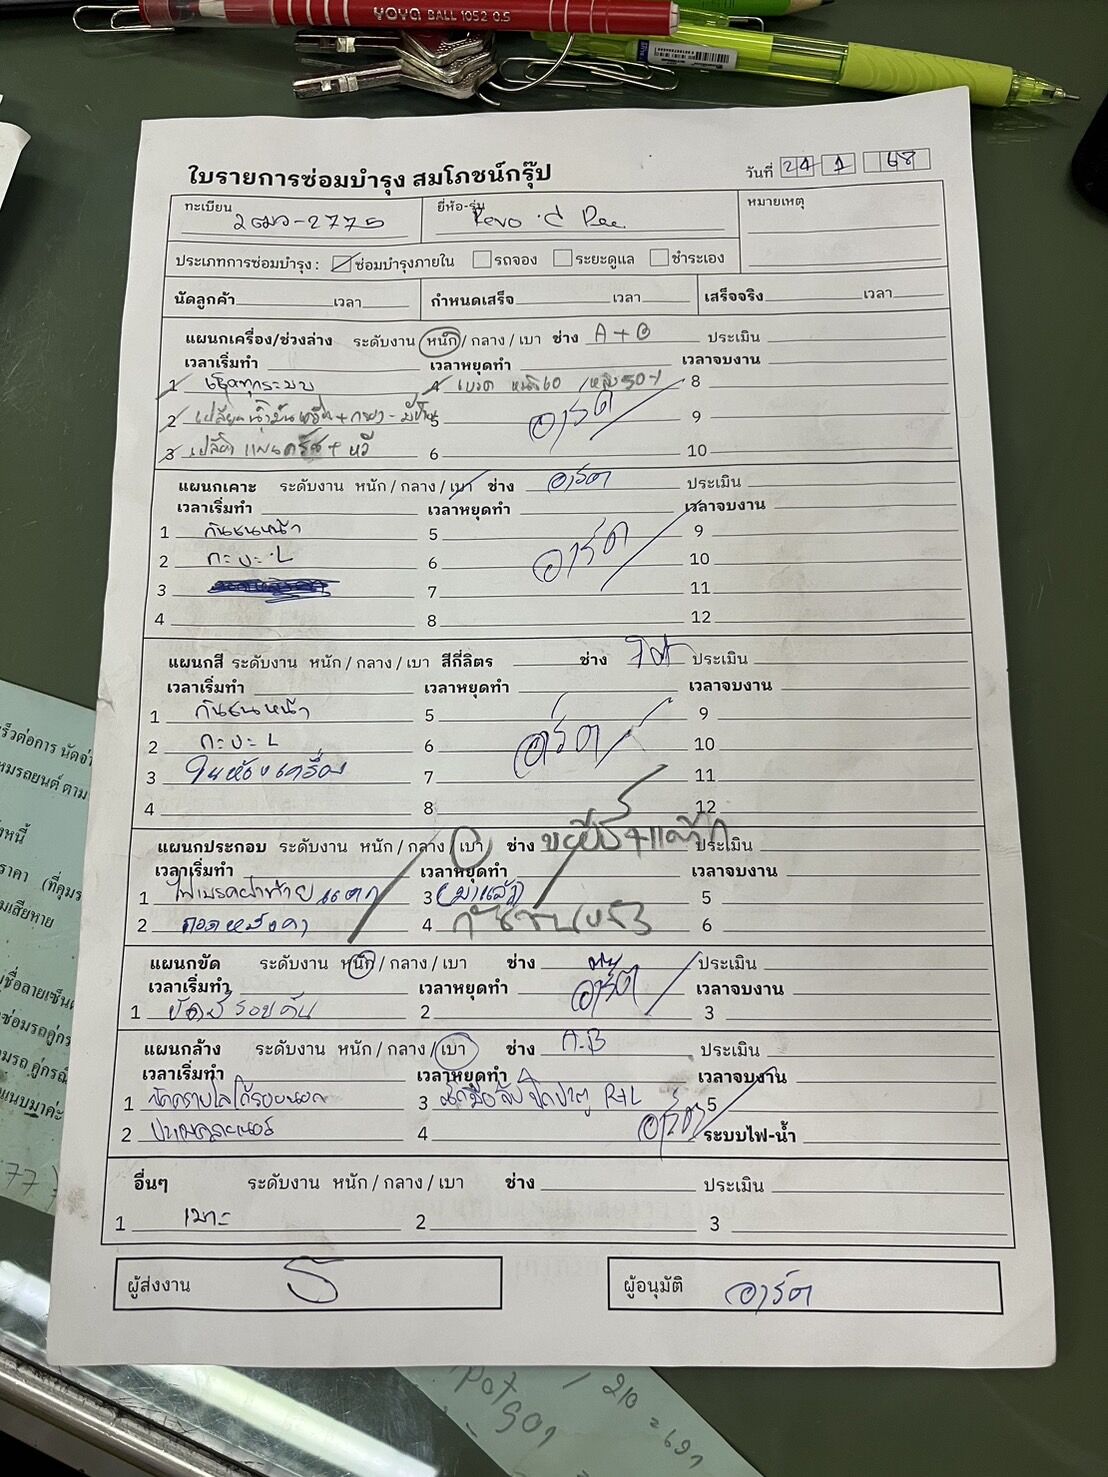 YOYA BALL 1052 0.5
ใบรายการซ่อมบำรุง สมโภชน์กรุ๊ป
วันที่ 24 1 68
ทะเบียน 2ฒว-2775 ยี่ห้อ-รุ่น Revo หมายเหตุ
ประเภทการซ่อมบำรุง : ซ่อมบำรุงภายใน รถจอง ระยะดูแล ชำระเอง
นัดลูกค้า เวลา กำหนดเสร็จ เวลา เสร็จจริง เวลา
แผนกเครื่อง/ช่วงล่าง ระดับงาน หนัก / กลาง / เบา ช่าง A+B ประเมิน
เวลาเริ่มทำ เวลาหยุดทำ เวลาจบงาน
1 เช็คทุกระบบ 4 เบรค หน้า60 /หลัง50-1 8
2 เปลี่ยนน้ำมันเครื่อง+กรอง- 5 อาร์ต 9
3 เปลี่ยน แผ่นครัช + หวี 6 10
แผนกเคาะ ระดับงาน หนัก / กลาง / เบา ช่าง อาร์ต ประเมิน
เวลาเริ่มทำ เวลาหยุดทำ เวลาจบงาน
1 กันชนหน้า 5 9
2 กะบะ L 6 อาร์ต 10
3 7 11
4 8 12
แผนกสี ระดับงาน หนัก / กลาง / เบา สีกี่ลิตร ช่าง ประเมิน
เวลาเริ่มทำ เวลาหยุดทำ เวลาจบงาน
1 กันชนหน้า 5 9
2 กะบะ L 6 อาร์ต 10
3 ในห้องเครื่อง 7 11
4 8 12
แผนกประกอบ ระดับงาน หนัก / กลาง / เบา ช่าง ประเมิน
เวลาเริ่มทำ เวลาหยุดทำ เวลาจบงาน
1 ไฟเบรคฝาท้ายแตก 3 (มาแล้ว) 5
2 ถอดหลังคา 4 6
แผนกขัด ระดับงาน หนัก / กลาง / เบา ช่าง ประเมิน
เวลาเริ่มทำ เวลาหยุดทำ อาร์ต เวลาจบงาน
1 ขัดสีรอบคัน 2 3
แผนกล้าง ระดับงาน หนัก / กลาง / เบา ช่าง A.B ประเมิน
เวลาเริ่มทำ เวลาหยุดทำ เวลาจบงาน
1 3 R+L 5
2 4 อาร์ต ระบบไฟ-น้ำ
อื่นๆ ระดับงาน หนัก / กลาง / เบา ช่าง ประเมิน
1 เบาะ 2 3
ผู้ส่งงาน ผู้อนุมัติ อาร์ต
ร็วต่อการ นัดจ่
หมรถยนต์ ตาม
ังหนี้
ราคา (ที่คุมร
มเสียหาย
ชื่อลายเซ็นต
ซ่อมรถคู่กร
มรถ คู่กรณี
แนบมาค่ะ
77
/ 210 = 691